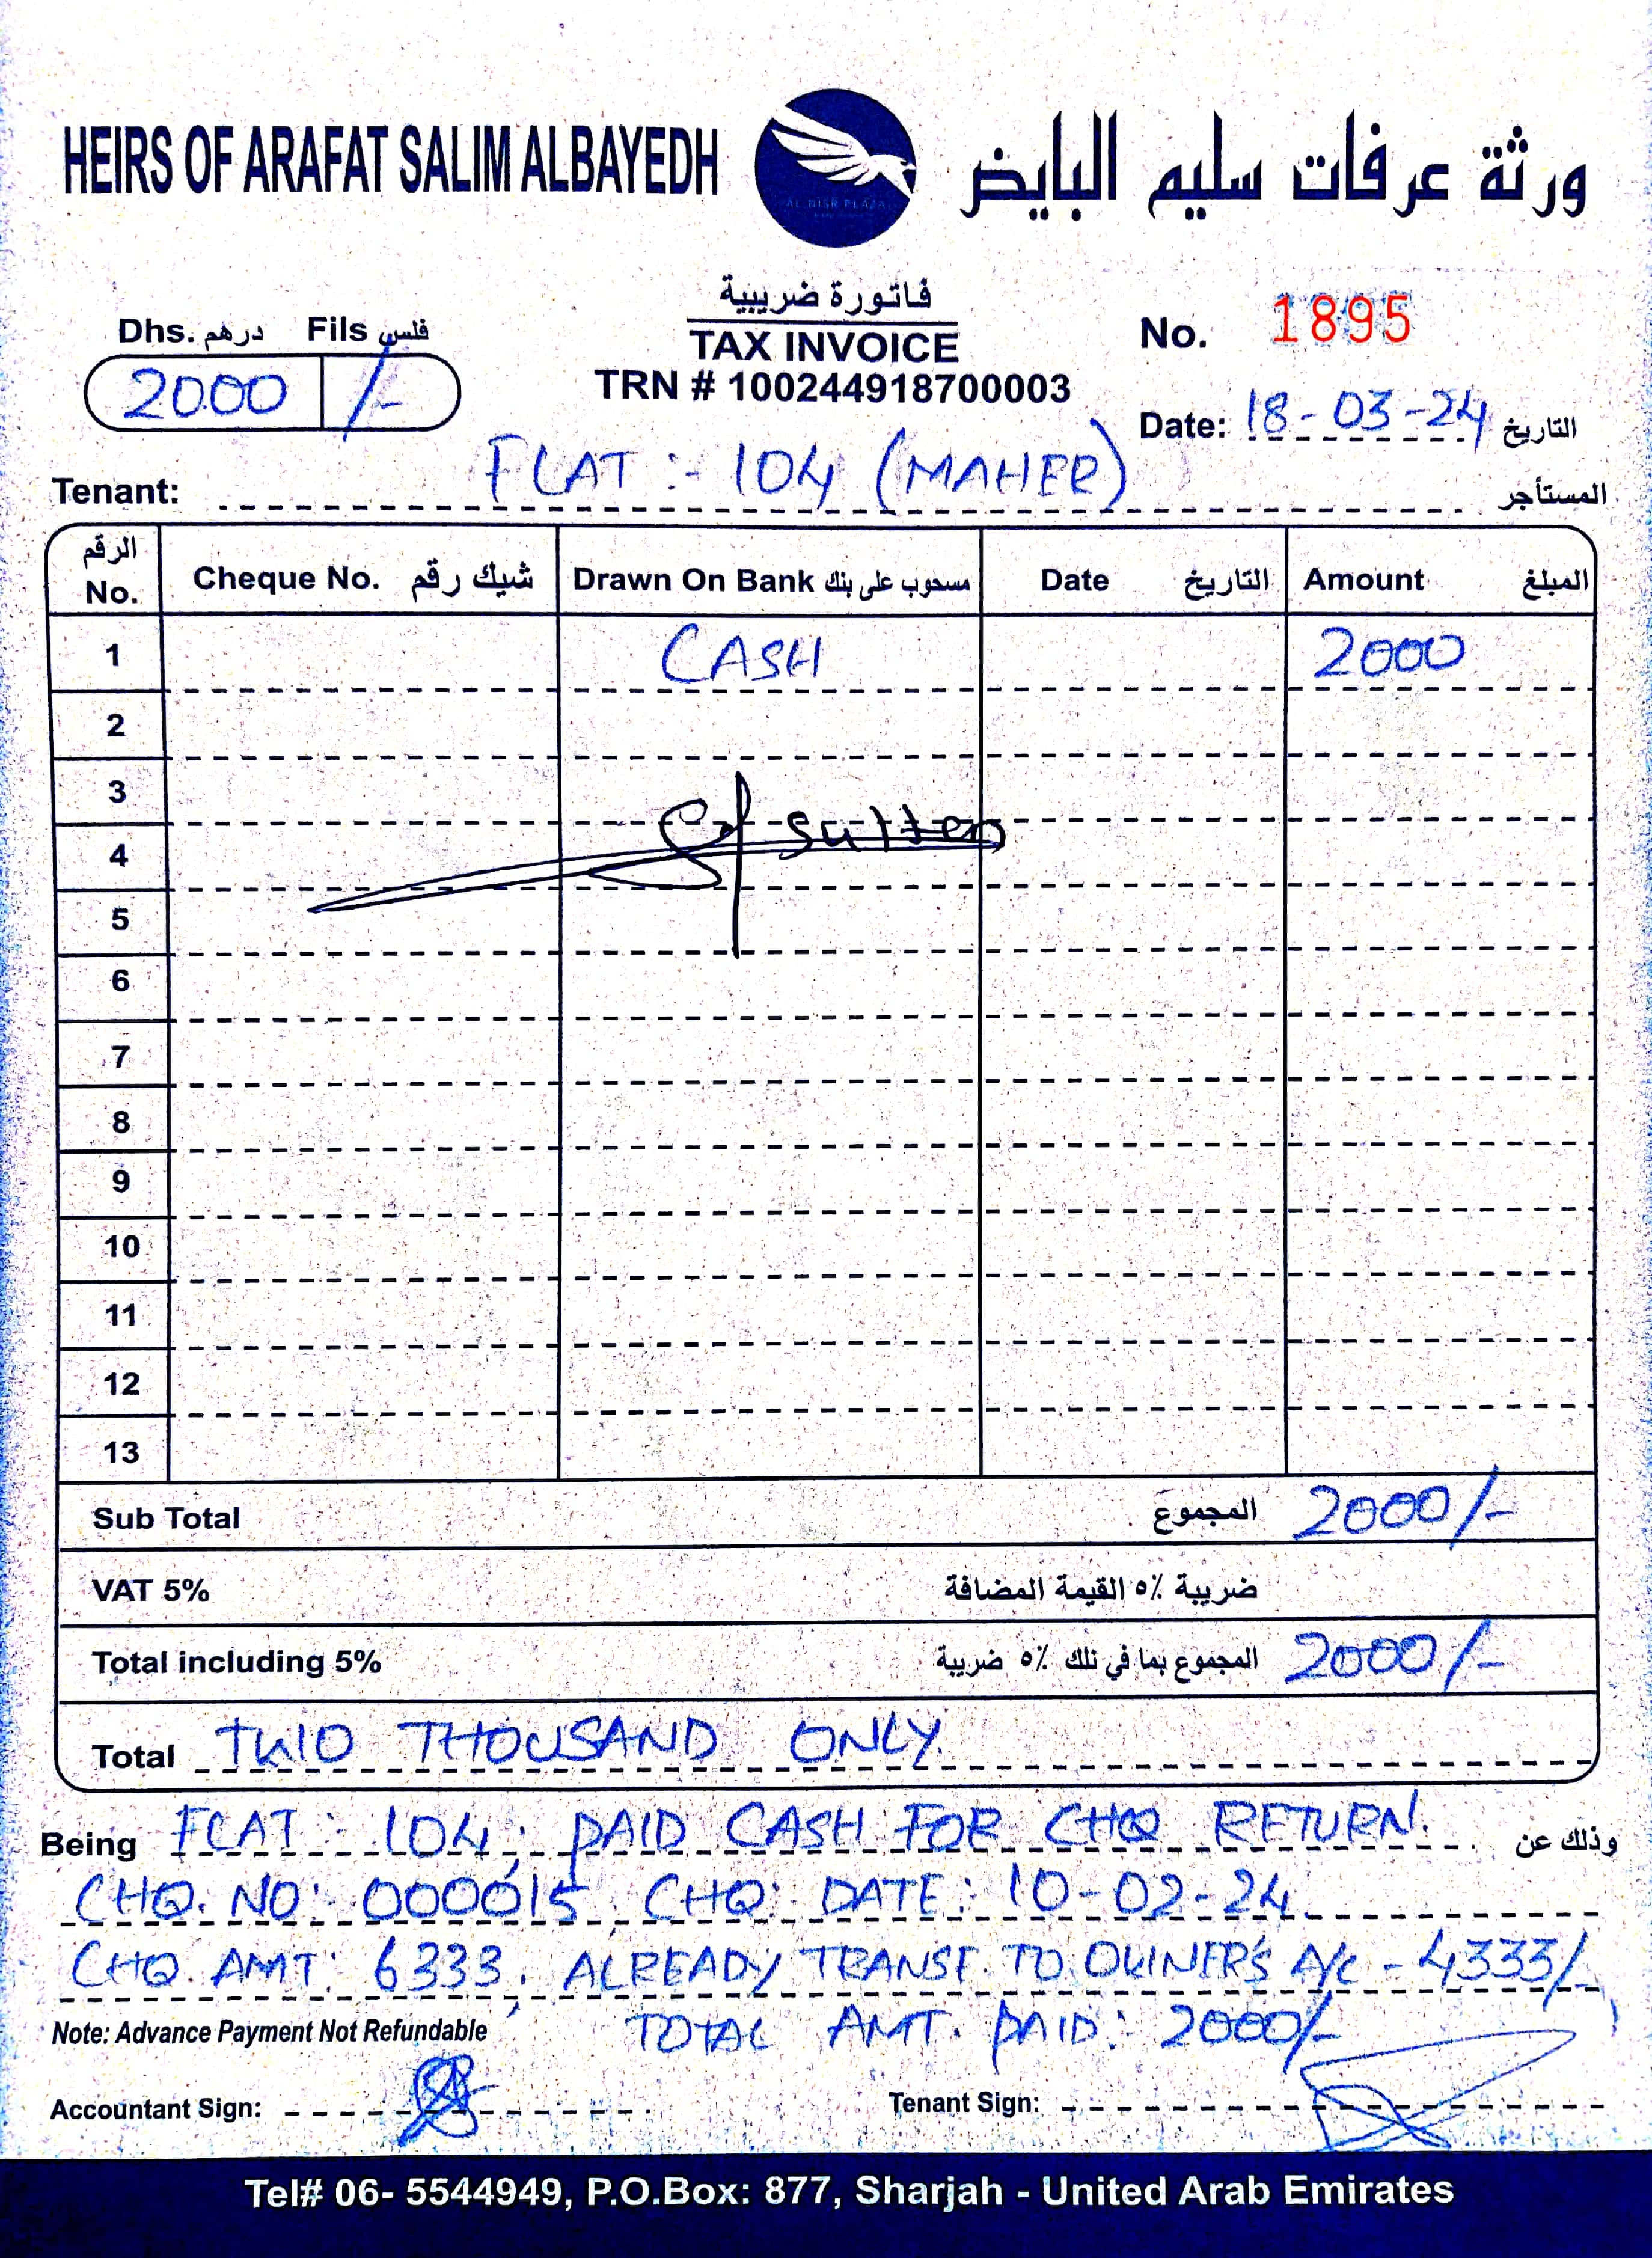 HEIRS OF ARAFAT SALIM ALBAYEDH
ورثة عرفات سليم البايض
AL NISR PLAZA
فاتورة ضريبية
TAX INVOICE
TRN # 100244918700003
Dhs. درهم Fils فلس
2000 /-
No. 1895
Date: 18-03-24 التاريخ
Tenant: FLAT :- 104 (MAHER) المستأجر
الرقم No. Cheque No. شيك رقم Drawn On Bank مسحوب على بنك Date التاريخ Amount المبلغ
1 CASH 2000
2
3
sultan
4
5
6
7
8
9
10
11
12
13
Sub Total المجموع 2000/-
VAT 5% ضريبة ٥٪ القيمة المضافة
Total including 5% المجموع بما في تلك ٥٪ ضريبة 2000/-
Total TWO THOUSAND ONLY.
Being FLAT :- 104, PAID CASH FOR CHQ RETURN. وذلك عن
CHQ. NO:- 000015, CHQ: DATE: 10-02-24
CHQ. AMT: 6333, ALREADY TRANSF. TO OWNER'S A/C - 4333/-
Note: Advance Payment Not Refundable TOTAL AMT. PAID: 2000/-
Accountant Sign: Tenant Sign:
Tel# 06- 5544949, P.O.Box: 877, Sharjah - United Arab Emirates